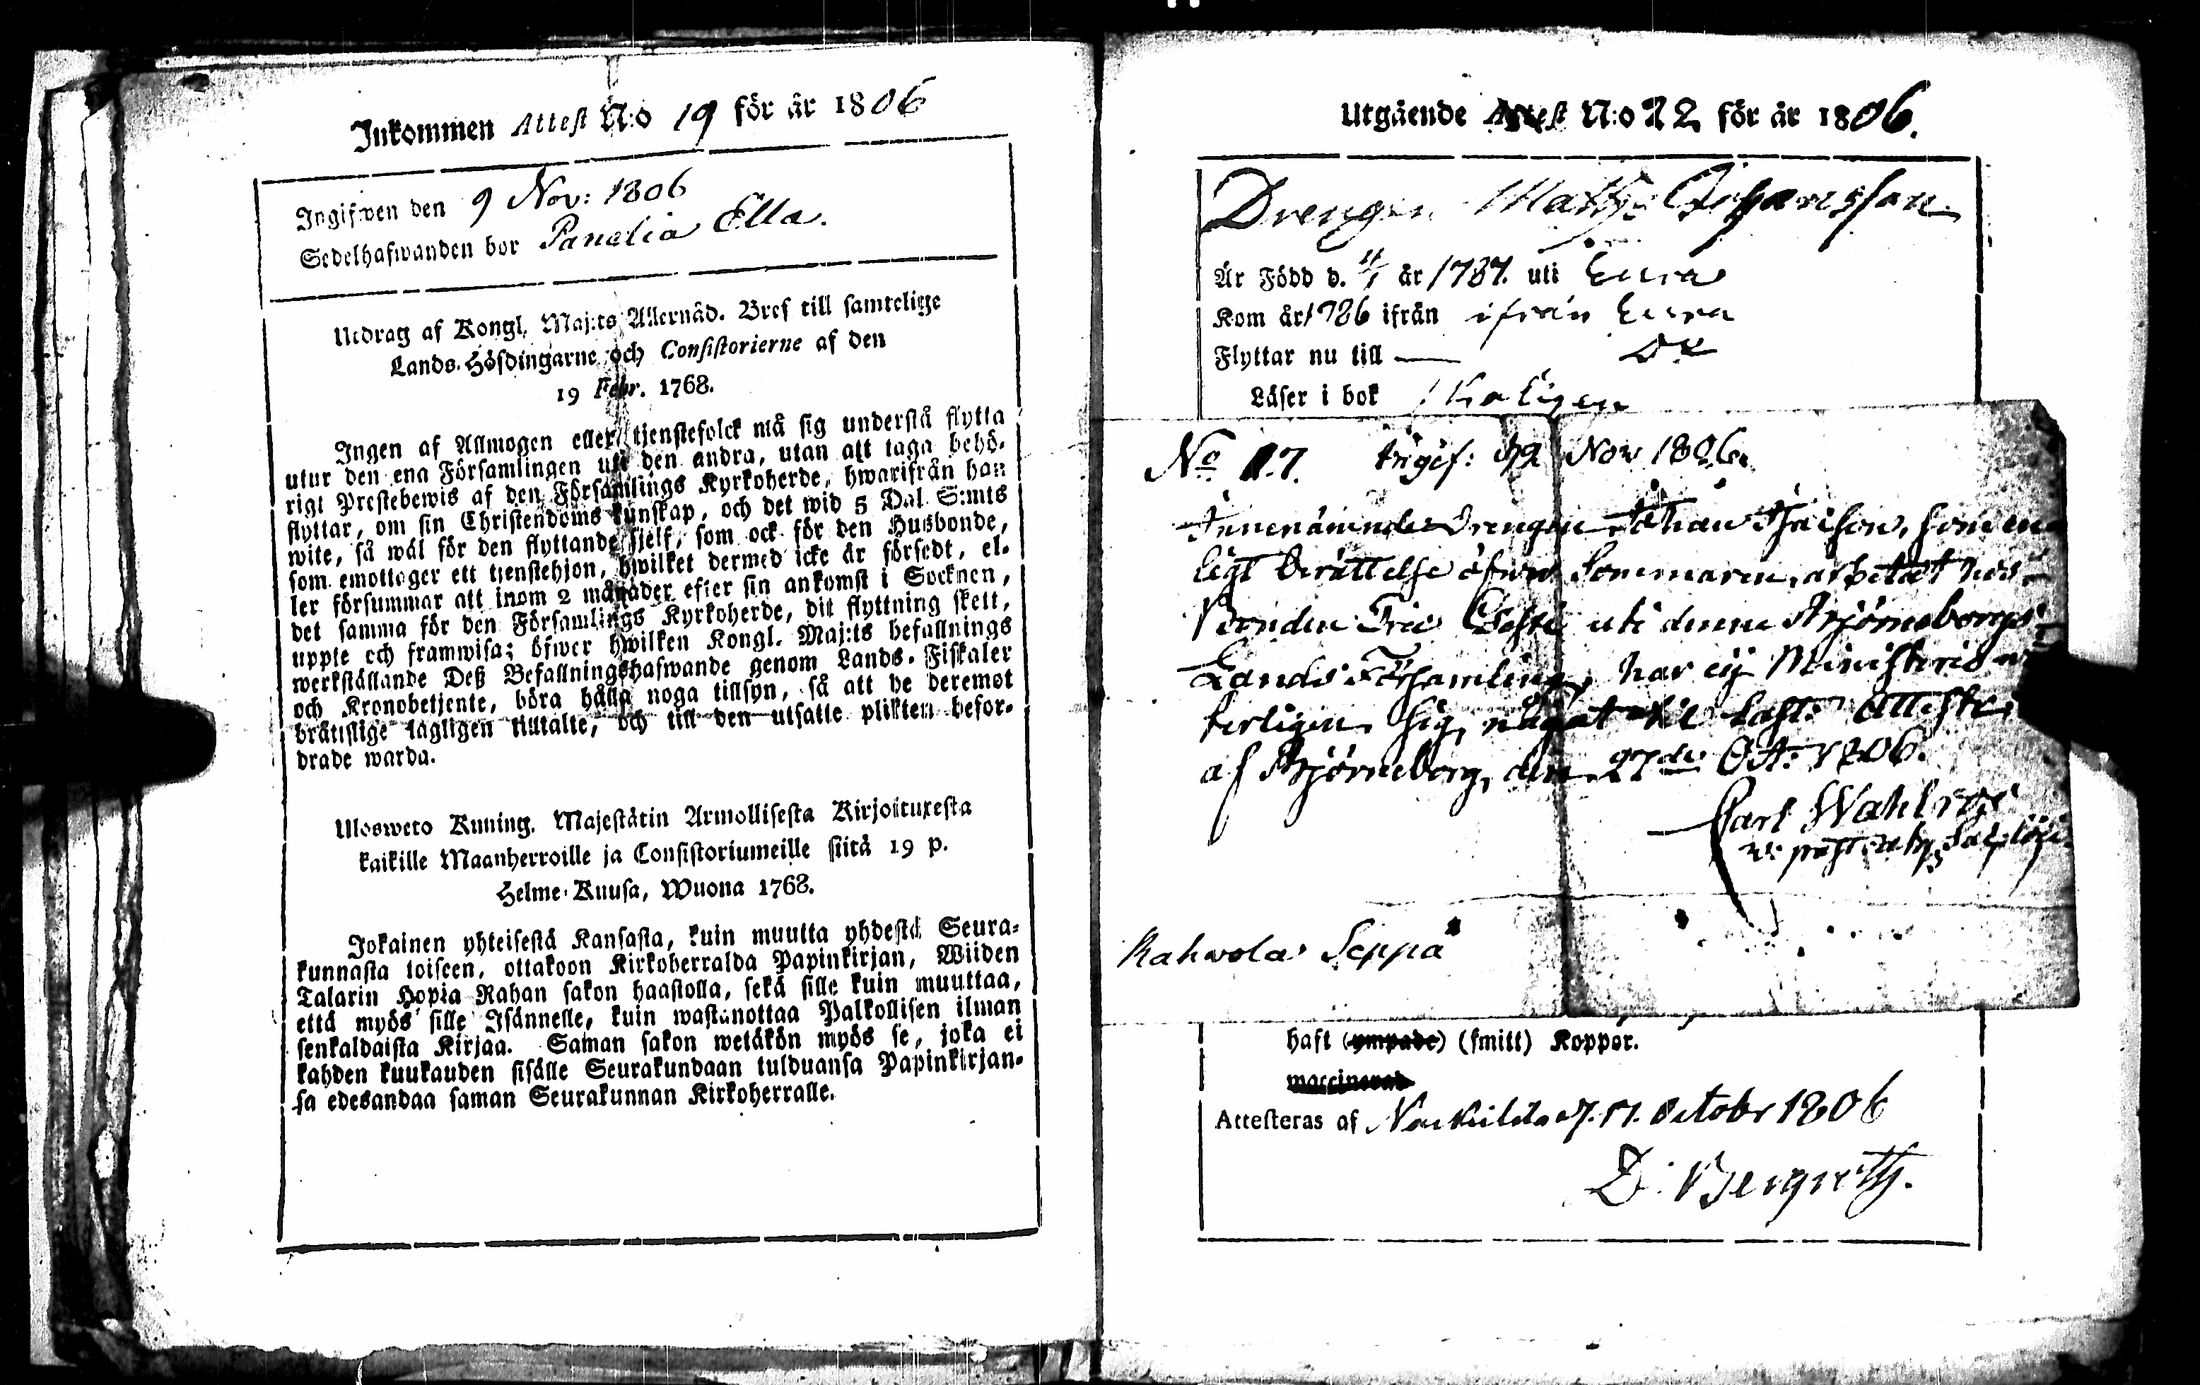 Inkommen Attest N:o 19 för år 1806
Ingifwen den 9 Nov: 1806
Sedelhafwanden bor Panelia Ella.
Utdrag af Kongl. Maj:ts Allernåd. Bref till samtelige
Lands-Höfdingarne och Consistorierne af den
19 Febr. 1768.
Ingen af Allmogen eller tjenstefolck må sig understå flytta
utur den ena Församlingen uti den andra, utan att taga behö-
rigt Prestebewis af den Församlings Kyrkoherde, hwarifrån han
flyttar, om sin Christendoms kunskap, och det wid 5 Dal. S:mts
wite, så wäl för den flyttande sjelf, som ock för den Husbonde,
som emottager ett tjenstehjon, hwilket dermed icke är försedt, el-
ler försummar att inom 2 månader efter sin ankomst i Socknen,
det samma för den Församlings Kyrkoherde, dit flyttning skett,
uppte och framwisa; öfwer hwilken Kongl. Maj:ts befallnings
werkställande Deß Befallningshafwande genom Lands-Fiskaler
och Kronobetjente, böra hålla noga tillsyn, så att de deremot
brättslige lagligen tilltalte, och till den utsatte plikten befor-
drade warda.
Ulosweto Kuning. Majestätin Armollisesta Kirjoituxesta
kaikille Maanherroille ja Consistoriumeille siitä 19 p.
Helme-Kuusa, Wuona 1768.
Jokainen yhteisestä Kansasta, kuin muutta yhdestä Seura-
kunnasta toiseen, ottakoon Kirkoherralda Papinkirjan, Wiiden
Talarin Hopia Rahan sakon haastolla, sekä sille kuin muuttaa,
että myös sille Isännelle, kuin wastanottaa Palkollisen ilman
senkaldaista Kirjaa. Saman sakon wetäkön myös se, joka ei
kahden kuukauden sisälle Seurakundaan tulduansa Papinkirjan-
sa edesandaa saman Seurakunnan Kirkoherralle.
Utgående Attest N:o 22 för år 1806.
Drengen Matts Johansson
Är Född d. år 1787. uti Eura
Kom år 1786 ifrån ifrån Eura
Flyttar nu till —
Läser i bok
No 17. Ingif: d 9 Nov 1806.
Innenämnde Drengen Johan Isacson, som en-
ligt berättelse öfwer Sommaren arbetat hos
Bonden Eric uti denne Björneborgs
Lands Församling, har ej Ministeria-
terligen sig något till last. Attesteras
af Björneborg, den 27de Oct. 1806.
Carl
Kahvola Seppä
haft (ympade) (smitt) Koppor.
waccinerad
Attesteras af October 1806
D. Bergroth.